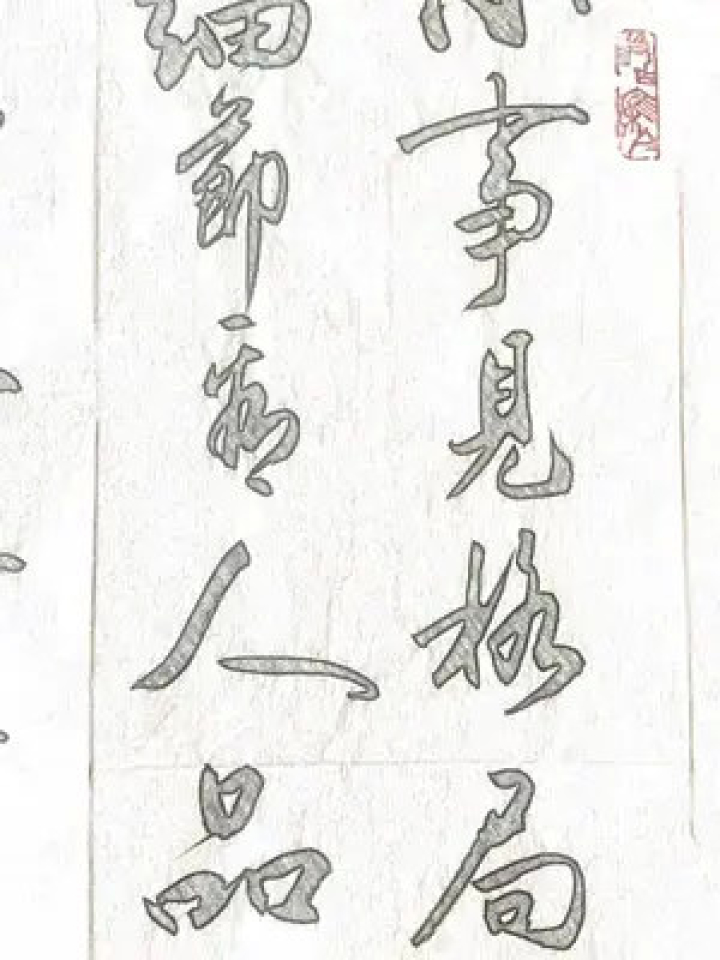 小事見格局
細節看人品